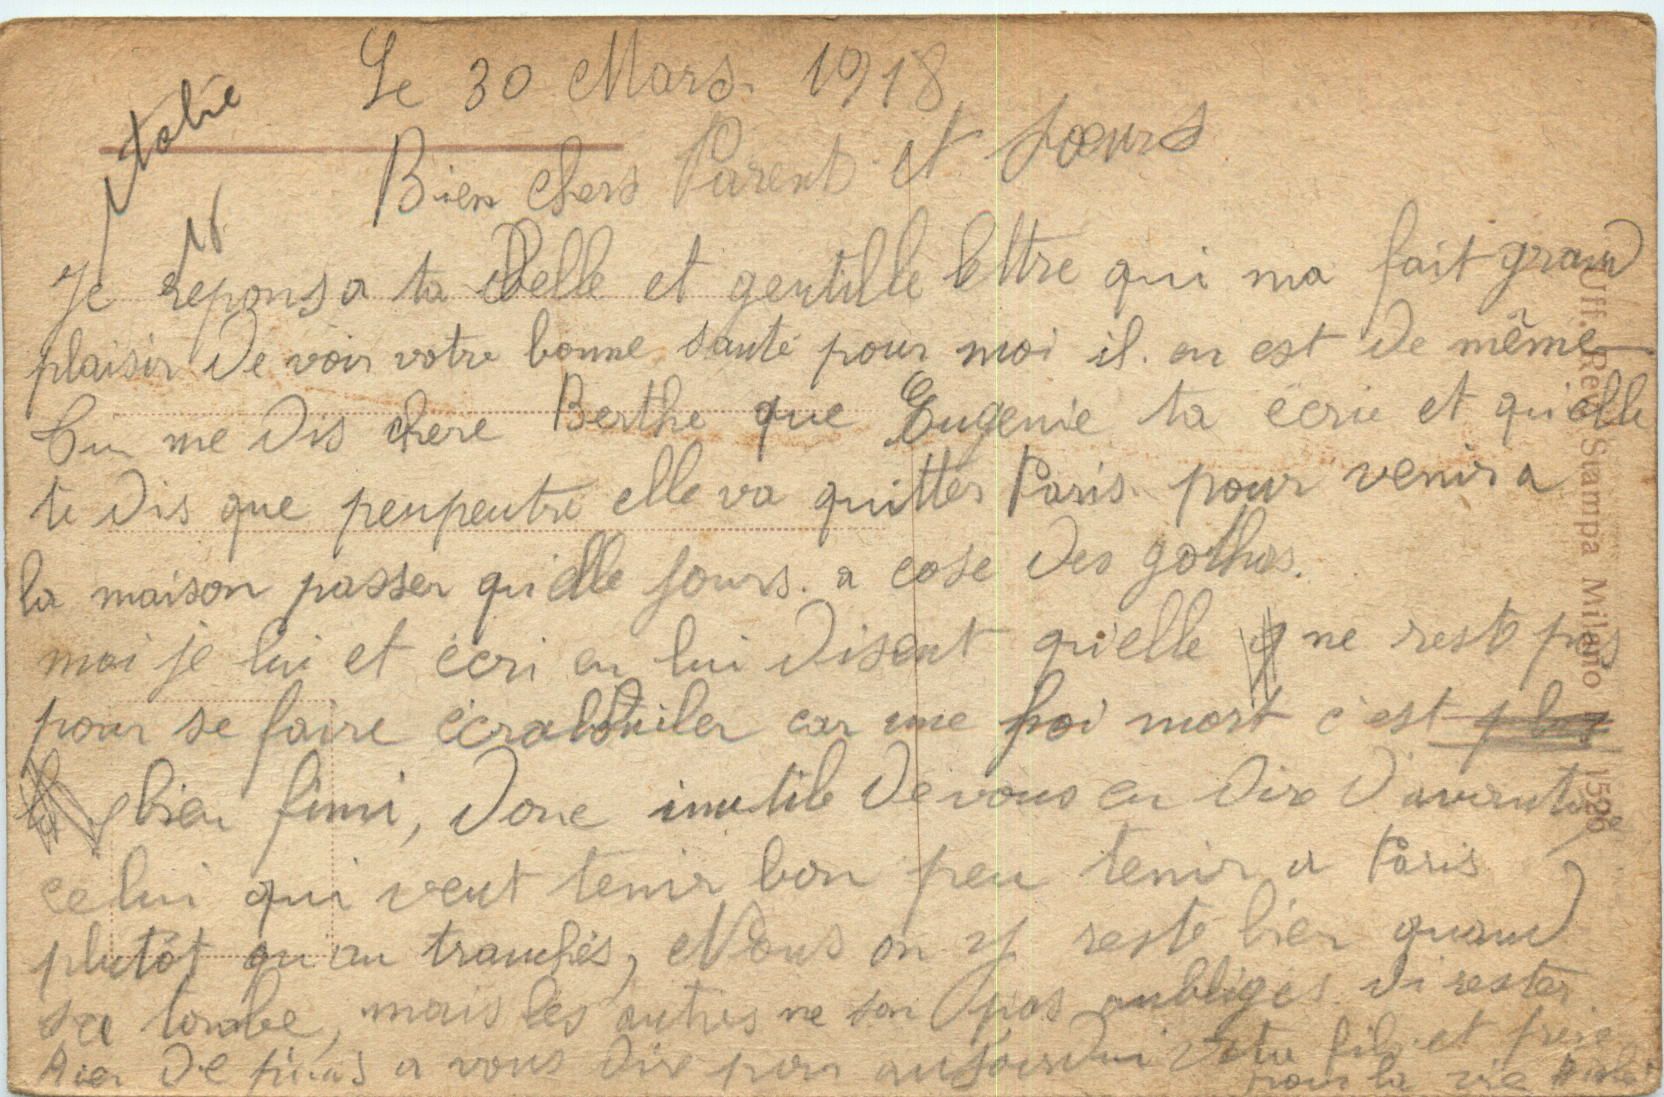 Le 30 Mars. 1918
Italie
Bien chers Parents et sœurs
Je reponsa ta belle et gentille lettre qui ma fait grand
plaisir De voir votre bonne santé pour moi il. en est De même
Tu me Dis chere Berthe que Eugenie ta écrie et qu'elle
te Dis que peupeutre elle va quitter Paris. pour venir a
la maison passer qu'elle jours. a cose Des gothas.
moi je lui et écri en lui Disent qu'elle ne reste pas
pour se faire écrabouiler car une foi mort c'est plus
bien fini, Donc inutile De vous en Dire D'avantage
celui qui veut tenir bon peu tenir a Paris
plutôt qu'au tranchés, Nous on y reste bien quand
sa tombe, mais les autres ne son pas aubligés Di rester
Rien De plus a vous Dire pour aujourdui votre fils et frère
pour la vie
Uff. Rev. Stampa Milano 1526